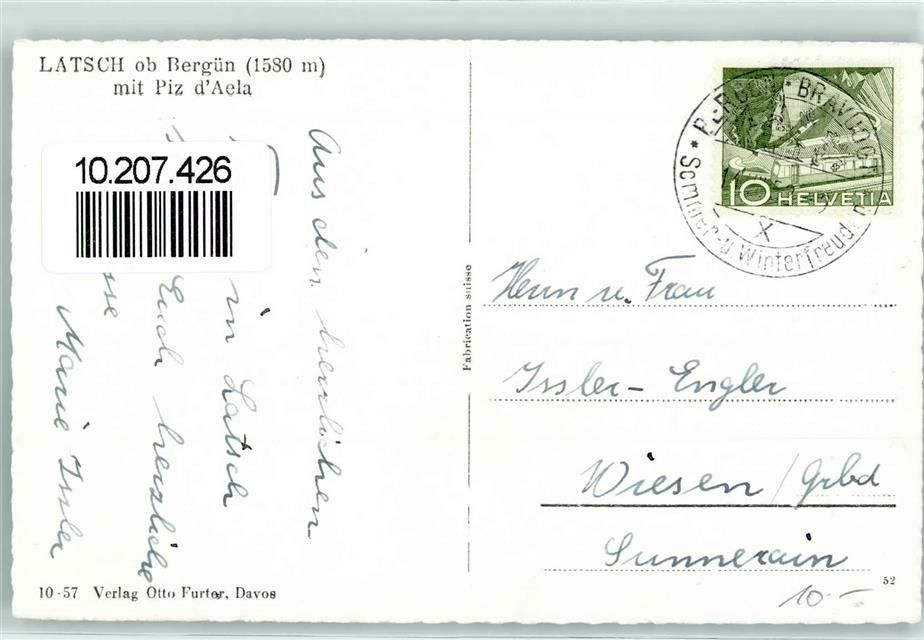 LATSCH ob Bergün (1580 m)
mit Piz d'Aela
10.207.426
Aus den herrlichen
in Latsch
Euch herzliche
Marie Issler
10-57 Verlag Otto Furter, Davos
Fabrication suisse
BERGÜN * BRAVUOGN
* Sommer-u. Winterfreuden
10 HELVETIA
Herrn u. Frau
Issler-Engler
Wiesen / Grbd
Sunnerain
52
10.-